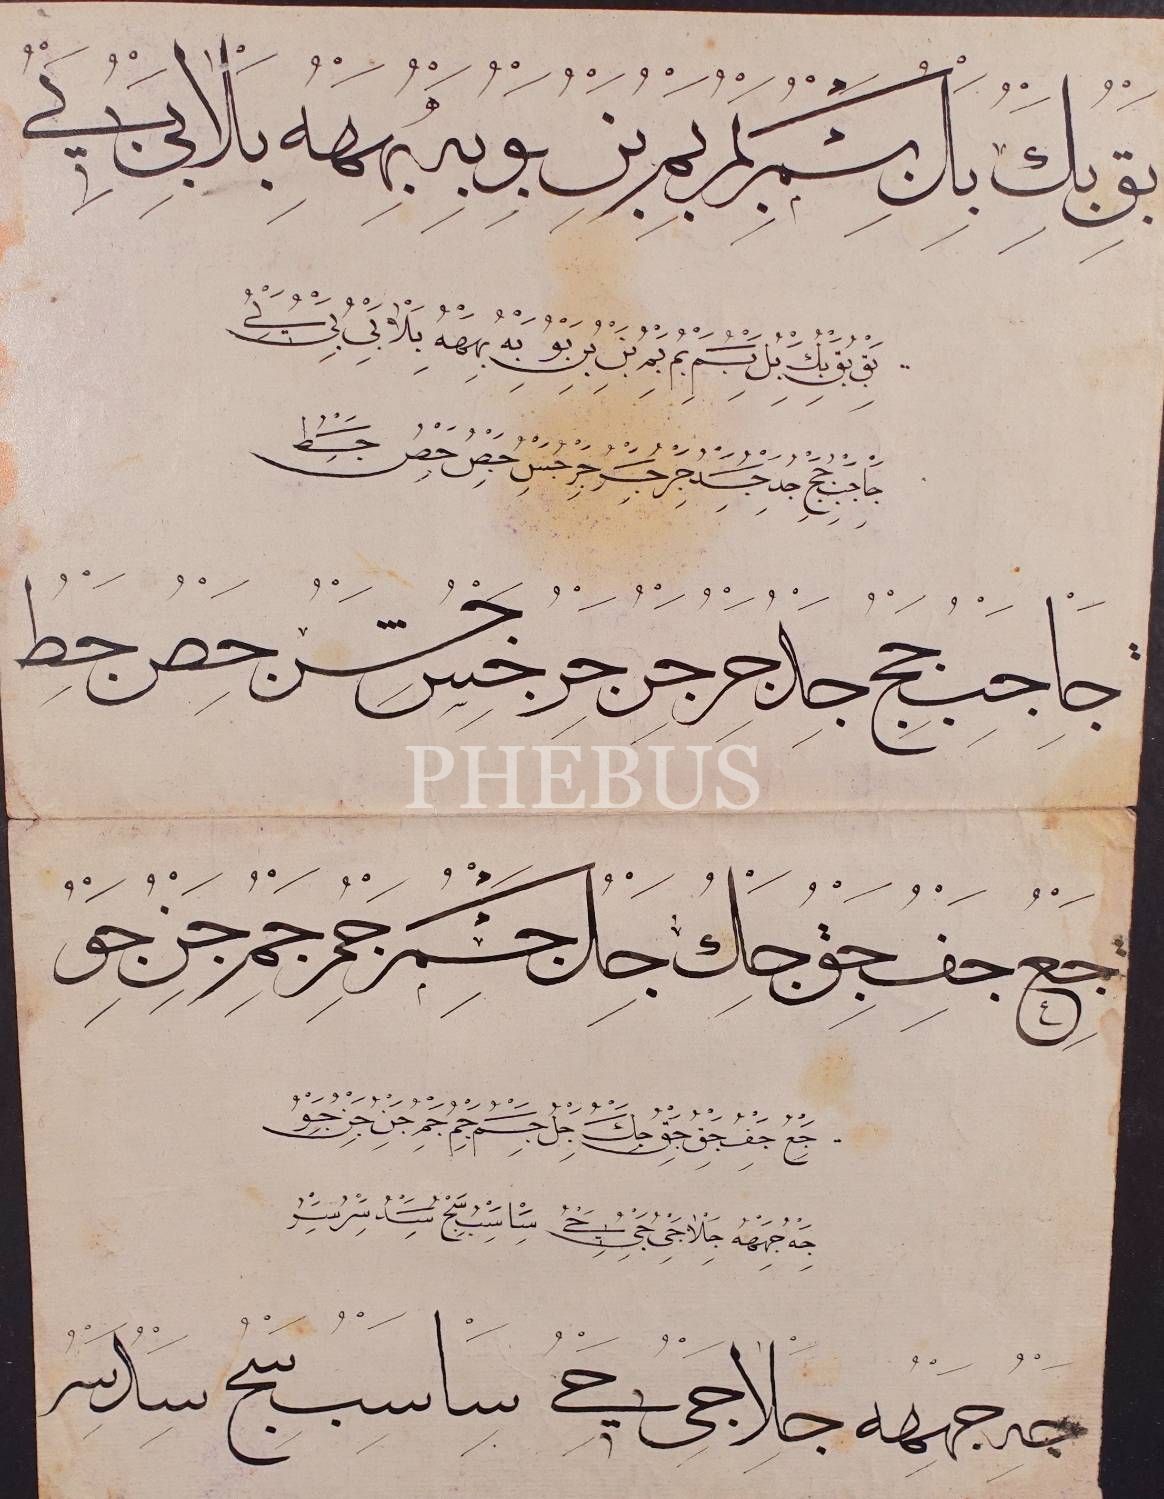 بق بك بل بسم بم بم بن بن بو به بهه بلا بى بے
بق بق بك بل بسم بم بم بن بن بو به بهه بلا بى بى بے
جا جب جج جد جد جر جر جر جس جص جص جط
جا جب جج جد جر جر جر جس جس جص جط
جع جف جق جك جل جسم جم جم جن جو
جع جف جق جق جك جل جسم جم جم جن جن جو
جه جهه جلا جى جى جے سا سب سج سد سر سر
PHEBUS
جه جهه جلا جى جے سا سب سج سد سر